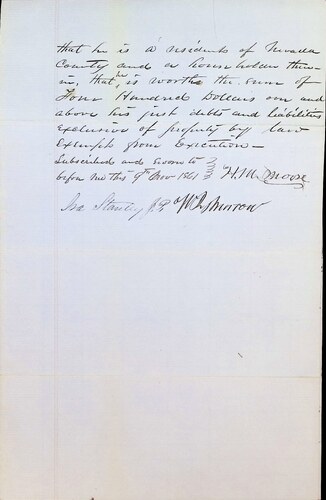 that he is a residents of Nevada
County and a householder there-
in, that he is worth the sum of
Four Hundred Dollars over and
above his just debts and liabilities
exclusive of property by law
Exempt from Execution—
Subscribed and Sworn to
before me this 9th Nov 1861 H.M. Moore
Stanley J.P.